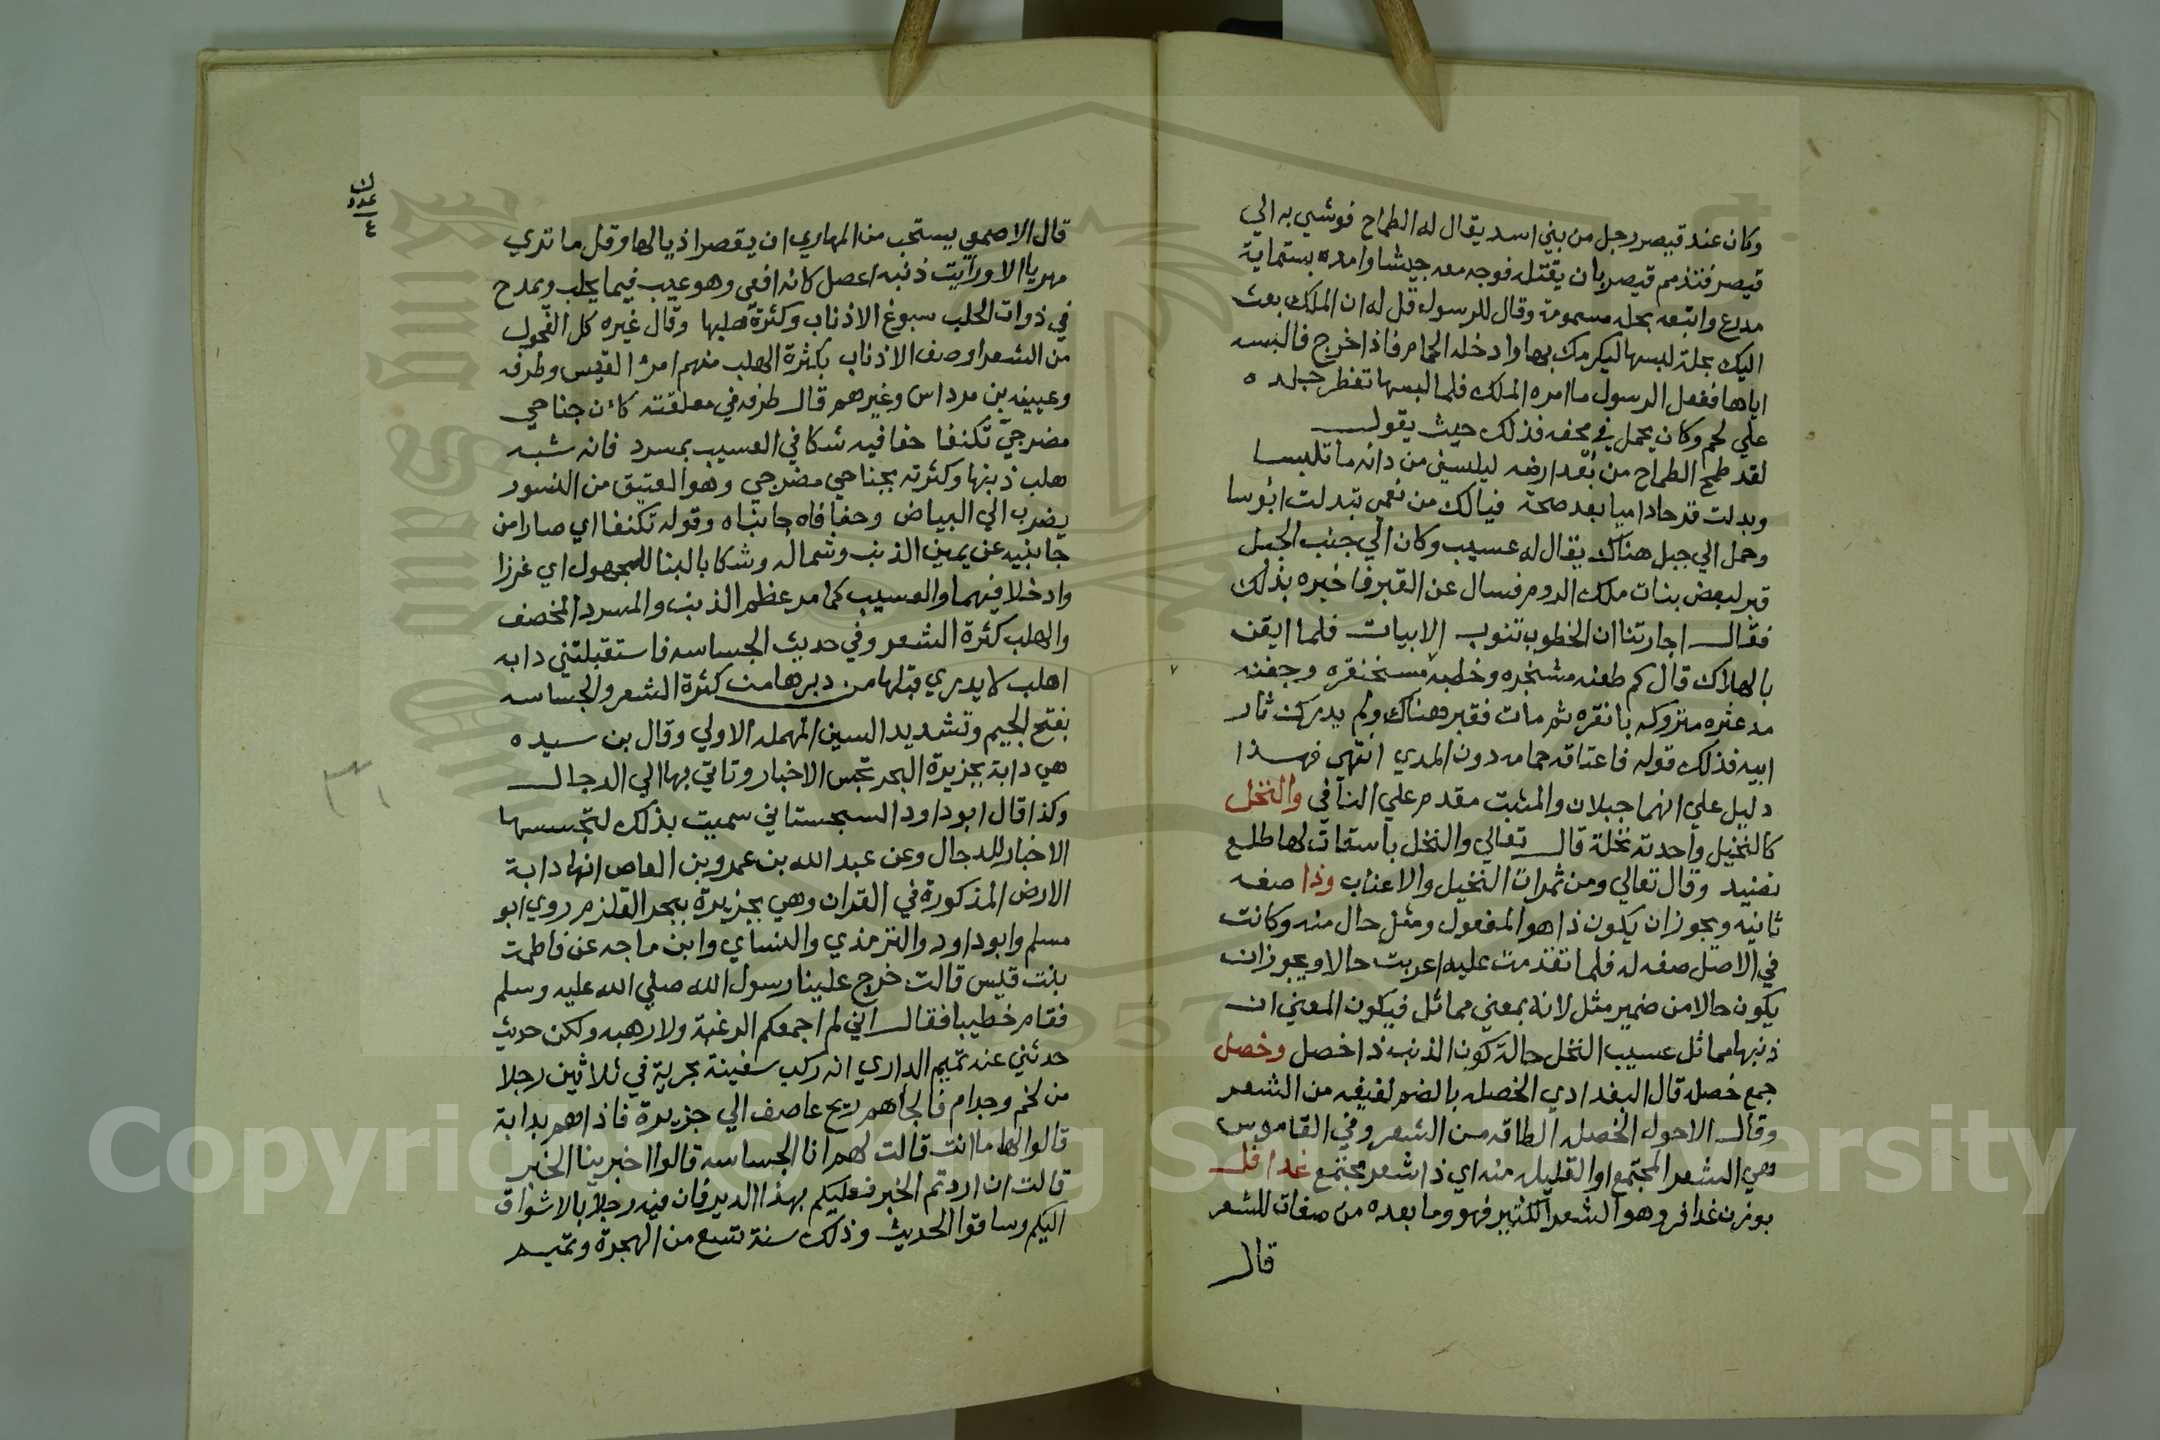 وكان عند قيصر رجل من بني اسد يقال له الطماح فوشي به الي
قيصر فتذمم قيصر بان يقتله فوجه معه جيشا وامده بستماية
مدرع واتبعه بحله مسمومة وقال للرسول قل له ان الملك بعث
اليك بحلة لبسها ليكرمك بها وادخله الحمام فاذا خرج فالبسه
اياها ففعل الرسول ما امره الملك فلما البسها تفطر جلده
علي لحم وكان يحمل في محفه فذلك حيث يقول
لقد طمح الطماح من بعد ارضه ليلبسني من دائه ما تلبسا
وبدلت قرحا داميا بعد صحة فيالك من نعمي تبدلت ابؤسا
وحمل الي جبل هناك يقال له عسيب وكان الي جنب الجبل
قبر لبعض بنات ملك الروم فسال عن القبر فاخبره بذلك
فقال اجارتنا ان الخطوب تنوب الابيات فلما ايقن
بالهلاك قال كم طعنه مثعنجره وخطبه مسحنفره وجفنه
مدعثره متروكه بانقره ثم مات فقبر هناك ولم يدرك ثار
ابيه فذلك قوله فاعتاقه حمامه دون المدي انتهى فهذا
دليل علي انهما جبلان والمثبت مقدم علي النافي والنخل
كالنخيل واحدته نخلة قال تعالي والنخل باسقات لها طلع
نضيد وقال تعالي ومن ثمرات النخيل والاعناب وذا صفه
ثانيه ويجوز ان يكون ذا هو المفعول ومثل حال منه وكانت
في الاصل صفه له فلما تقدمت عليه اعربت حالا ويجوز ان
يكون حالا من ضمير مثل لانه بمعني مماثل فيكون المعني ان
ذنبها مماثل عسيب النخل حالة كون الذنب ذا خصل وخصل
جمع خصله قال البغدادي الخصله بالضم لفيفه من الشعر
وقال الاحول الخصله الطاقه من الشعر وفي القاموس
هي الشعر المجتمع او القليل منه اي ذا شعر مجتمع غدافل
بوزن غدافر وهو الشعر الكثير فهو وما بعده من صفات للشعر
قال
قال الاصمعي يستحب من المهاري ان يقصر اذيالها وقل ما تري
مهريا الا ورايت ذنبه اعصل كانه افعي وهو عيب فيما يحلب ويمدح
في ذوات الحلب سبوغ الاذناب وكثرة هلبها وقال غيره كل الفحول
من الشعرا وصف الاذناب بكثرة الهلب منهم امرؤ القيس وطرفه
وعيينه بن مرداس وغيرهم قال طرفه في معلقته كان جناحي
مضرجي تكنفا حفافيه شكا في العسيب بمسرد فانه شبه
هلب ذنبها وكثرته بجناحي مضرجي وهو العتيق من النسور
يضرب الي البياض وحفافاه جانباه وقوله تكنفا اي صارا من
جانبيه عن يمين الذنب وشماله وشكا بالبنا للمجهول اي غرزا
وادخلا فيهما والعسيب كما مر عظم الذنب والمسرد المخصف
والهلب كثرة الشعر وفي حديث الجساسه فاستقبلتني دابه
اهلب لا يدري قبلها من دبرها من كثرة الشعر والجساسه
بفتح الجيم وتشديد السين المهمله الاولي وقال بن سيده
هي دابة بجزيرة البحر تجس الاخبار وتاتي بها الي الدجال
وكذا قال ابو داود السجستاني سميت بذلك لتجسسها
الاخبار للدجال وعن عبد الله بن عمرو بن العاص انها دابة
الارض المذكورة في القران وهي بجزيرة ببحر القلزم روي ابو
مسلم وابو داود والترمذي والنساي وابن ماجه عن فاطمت
بنت قيس قالت خرج علينا رسول الله صلي الله عليه وسلم
فقام خطيبا فقال اني لم اجمعكم الرغبة ولا رهبه ولكن حديث
حدثني عنه تميم الداري انه ركب سفينة بحرية في ثلاثين رجلا
من لخم وجدام فالجاهم ريح عاصف الي جزيرة فاذاهم بدابة
قالوا لها ما انت قالت لهم انا الجساسه قالوا اخبرينا الخبر
قالت ان اردتم الخبر فعليكم بهذا الدير فان فيه رجلا بالاشواق
اليكم وساقوا الحديث وذلك سنة تسع من الهجرة وتميم
Copyright © King Saud University